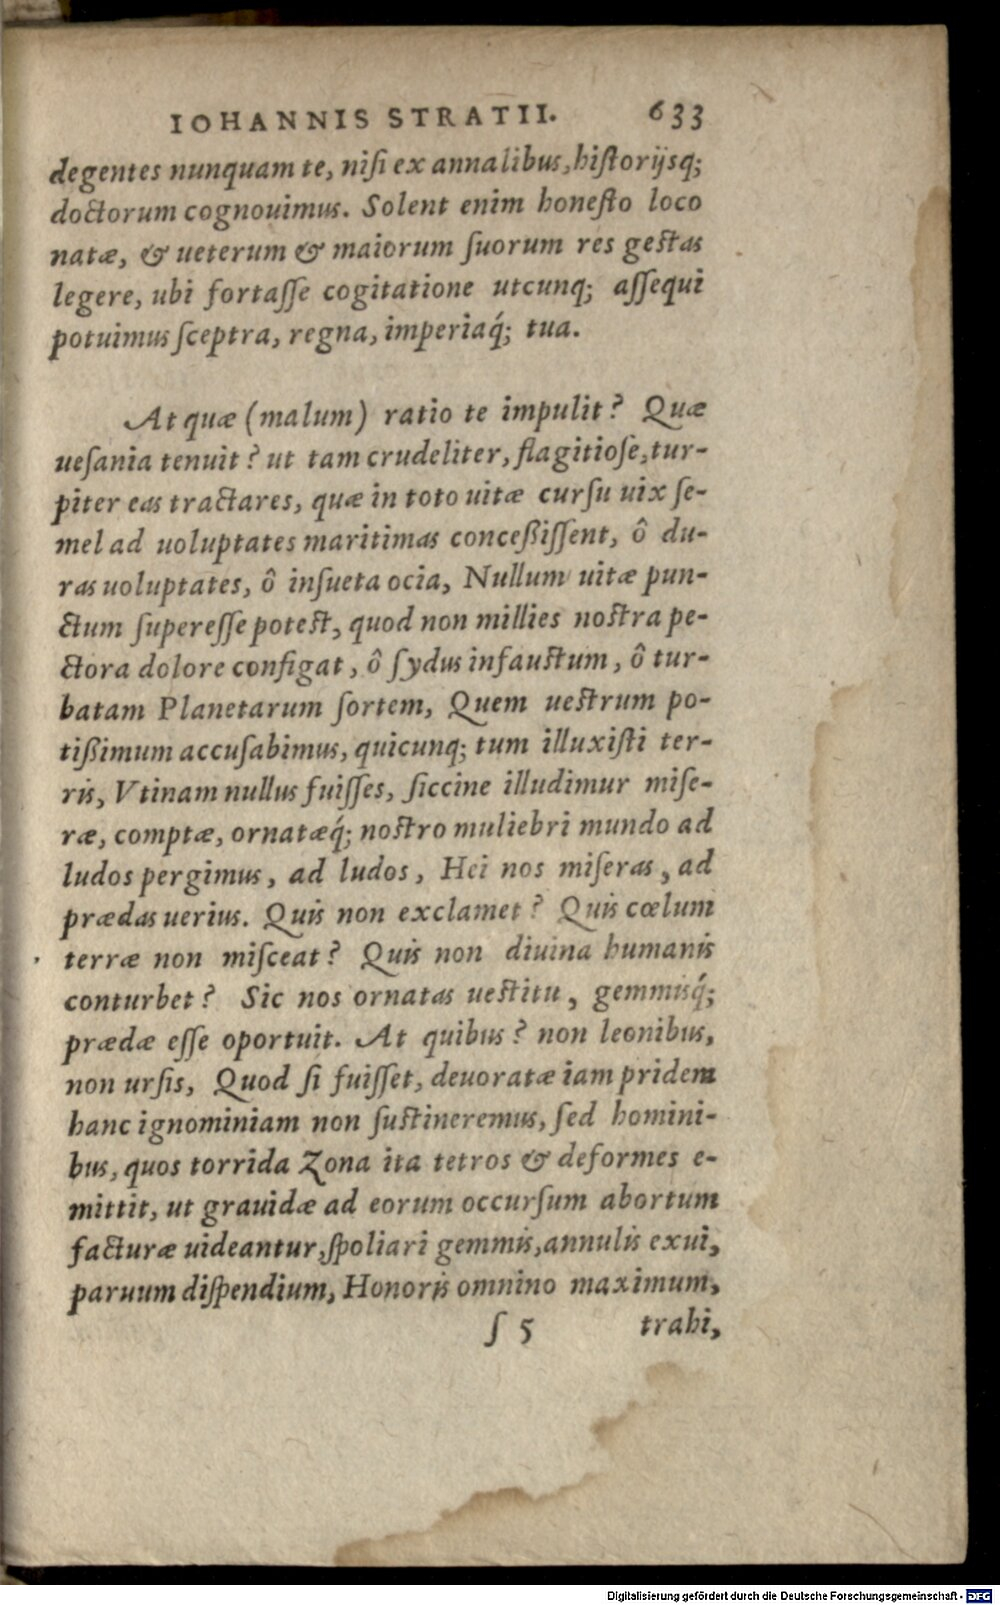 IOHANNIS STRATII. 633
degentes nunquam te, niſi ex annalibus, hiſtorijsq;
doctorum cognouimus. Solent enim honeſto loco
natæ, & ueterum & maiorum ſuorum res geſtas
legere, ubi fortaſſe cogitatione utcunq; aſſequi
potuimus ſceptra, regna, imperiaq́; tua.
At quæ (malum) ratio te impulit? Quæ
ueſania tenuit? ut tam crudeliter, flagitioſe, tur-
piter eas tractares, quæ in toto uitæ curſu uix ſe-
mel ad uoluptates maritimas conceßiſſent, ô du-
ras uoluptates, ô inſueta ocia, Nullum uitæ pun-
ctum ſupereſſe poteſt, quod non millies noſtra pe-
ctora dolore configat, ô ſydus infauſtum, ô tur-
batam Planetarum ſortem, Quem ueſtrum po-
tißimum accuſabimus, quicunq; tum illuxiſti ter-
ris, Vtinam nullus fuiſſes, ſiccine illudimur miſe-
ræ, comptæ, ornatæq́; noſtro muliebri mundo ad
ludos pergimus, ad ludos, Hei nos miſeras, ad
prædas uerius. Quis non exclamet? Quis cœlum
terræ non miſceat? Quis non diuina humanis
conturbet? Sic nos ornatas ueſtitu, gemmisq́;
prædæ eſſe oportuit. At quibus? non leonibus,
non urſis, Quod ſi fuiſſet, deuoratæ iam pridem
hanc ignominiam non ſuſtineremus, ſed homini-
bus, quos torrida Zona ita tetros & deformes e-
mittit, ut grauidæ ad eorum occurſum abortum
facturæ uideantur, ſpoliari gemmis, annulis exui,
paruum diſpendium, Honoris omnino maximum,
ſ 5 trahi,
Digitalisierung gefördert durch die Deutsche Forschungsgemeinschaft - DFG